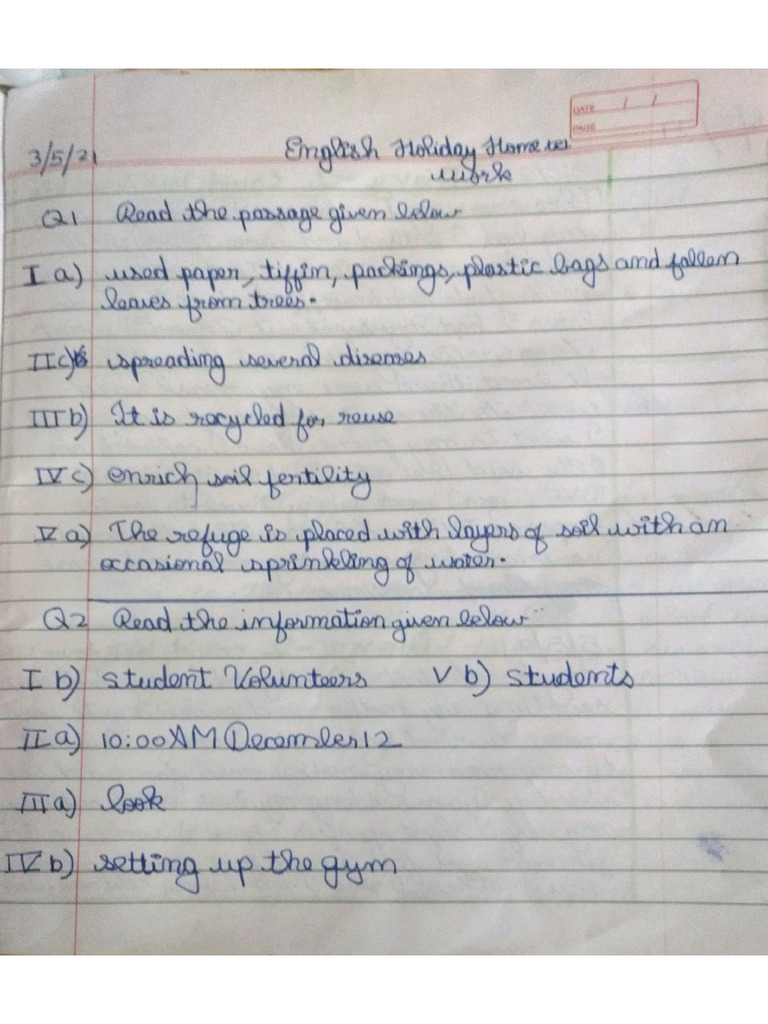 DATE / /
PAGE
3/5/21 English Holiday Home
work
Q1 Read the passage given below
I a) used paper, tiffin, packings, plastic bags and fallen
leaves from trees.
II c) spreading several diseases
III b) It is recycled for reuse
IV c) enrich soil fertility
V a) The refuge is placed with layers of soil with an
occasional sprinkling of water.
Q2 Read the information given below
I b) student Volunteers V b) students
II a) 10:00 AM December 12
III a) look
IV b) setting up the gym